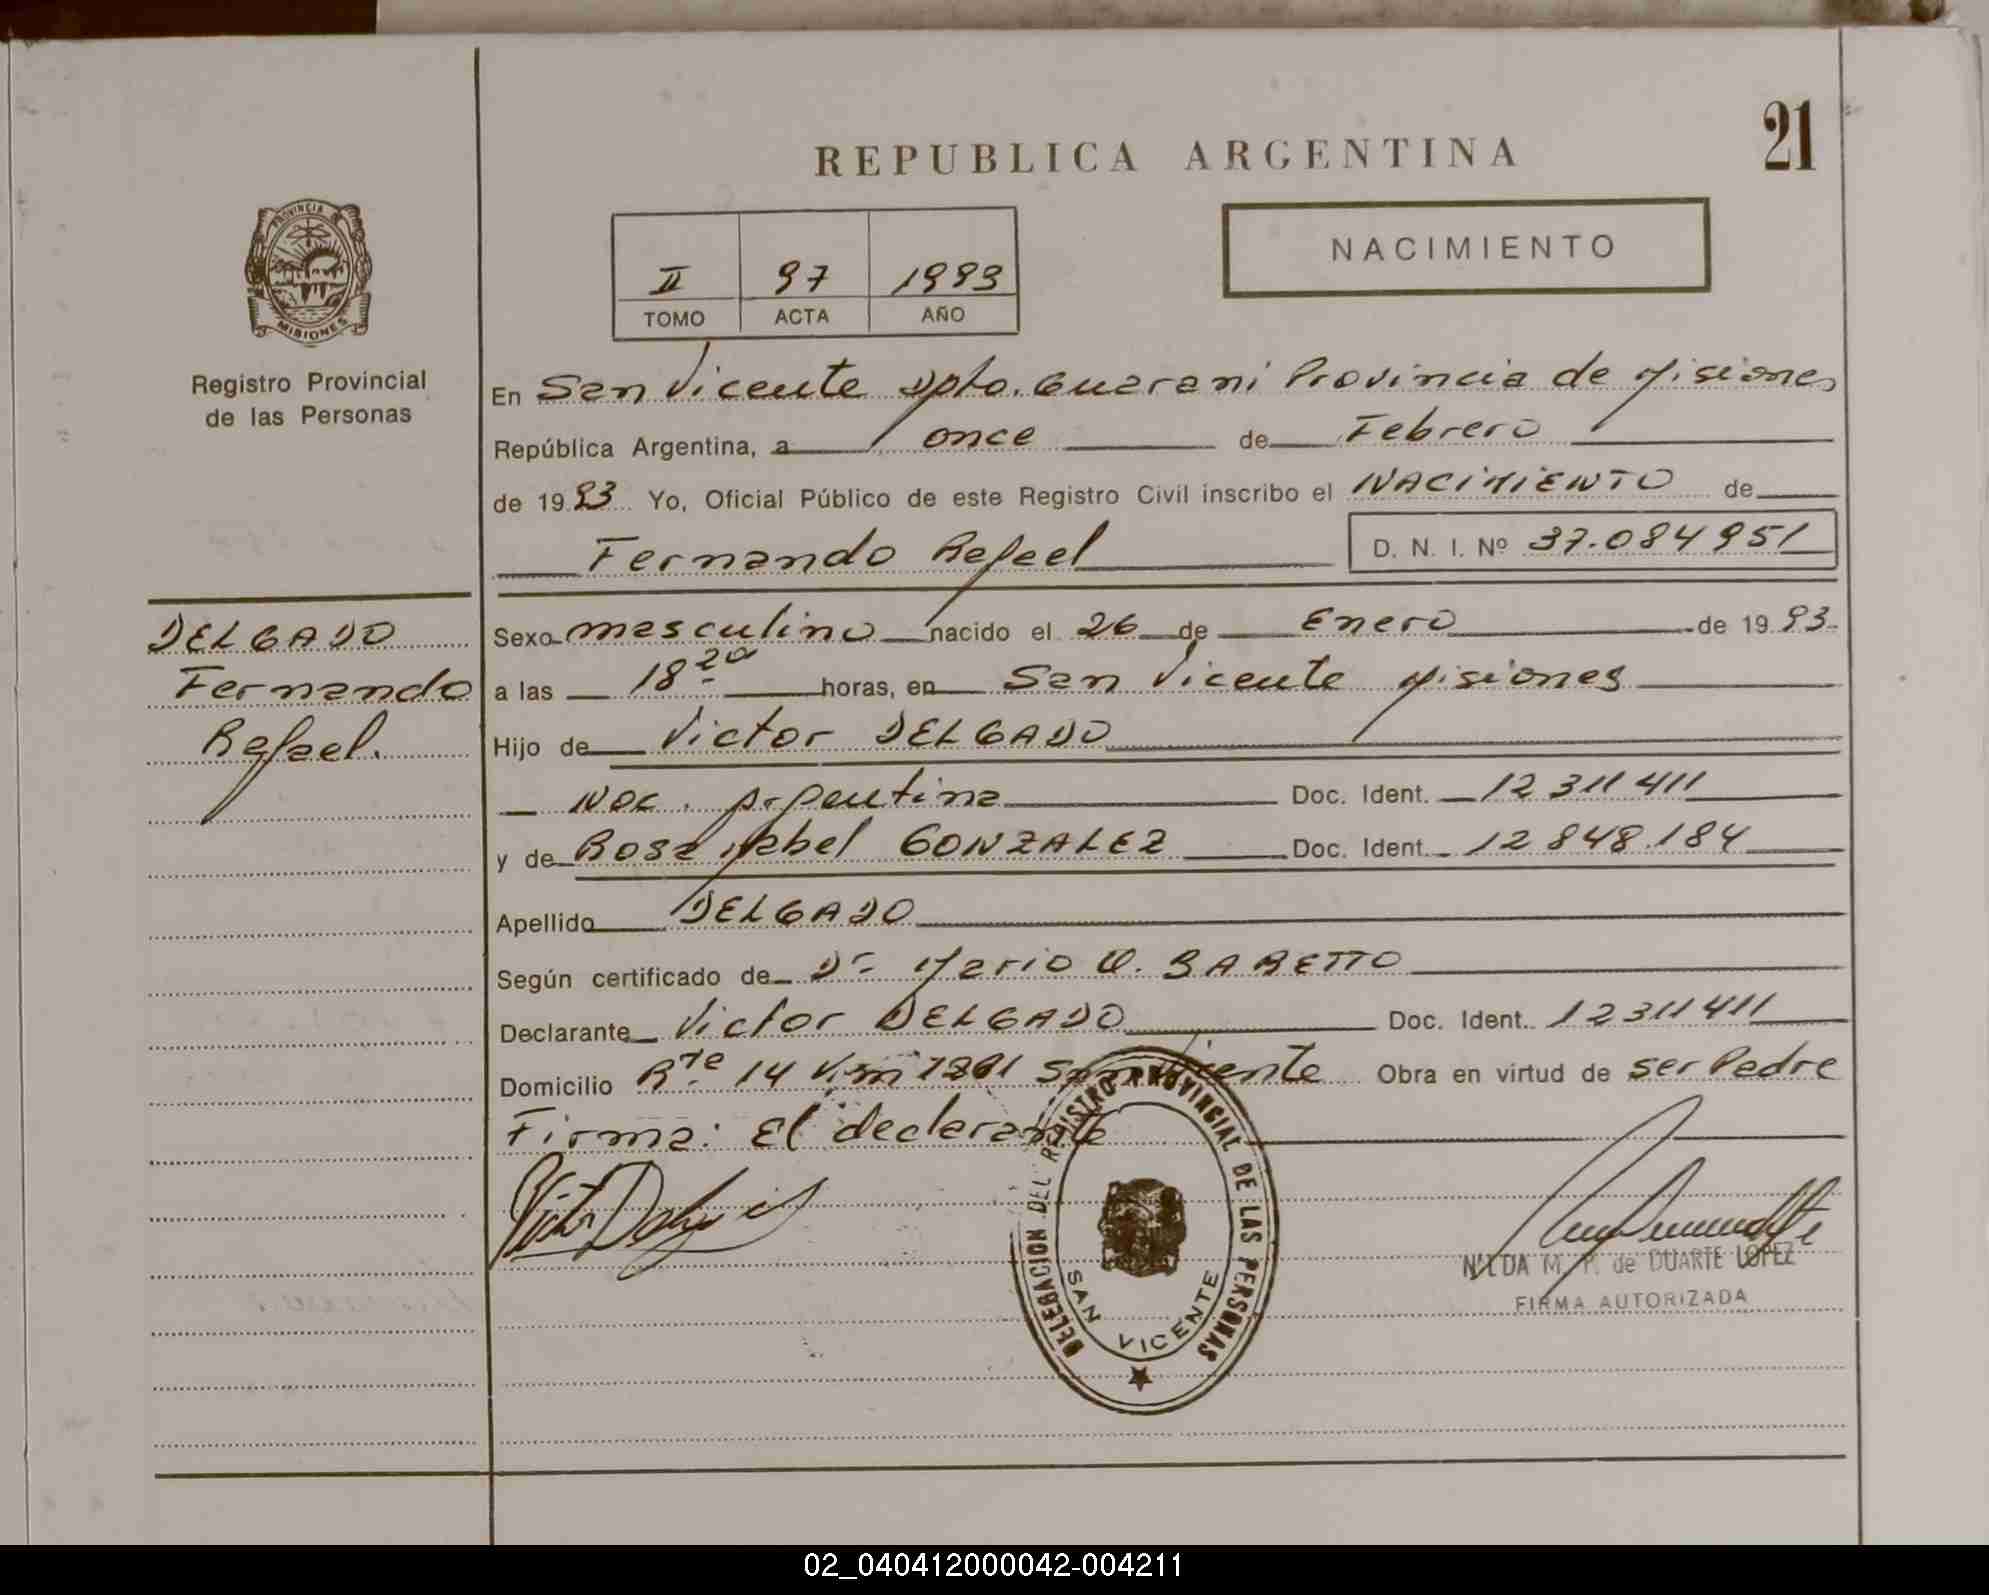 21
REPUBLICA ARGENTINA
NACIMIENTO
II 97 1993
TOMO ACTA AÑO
PROVINCIA
MISIONES
Registro Provincial
de las Personas
DELGADO
Fernando
Rafael.
En San Vicente Dpto. Guarani Provincia de Misiones
República Argentina, a once de Febrero
de 1993 Yo, Oficial Público de este Registro Civil inscribo el NACIMIENTO de
Fernando Rafael D. N. I. Nº 37.084951
Sexo masculino nacido el 26 de Enero de 1993
a las 18 20 horas, en San Vicente Misiones
Hijo de Victor DELGADO
Nac. Argentina Doc. Ident. 12 311 411
y de Rosa Isabel GONZALEZ Doc. Ident. 12 848.184
Apellido DELGADO
Según certificado de Dr Mario O. BARETTO
Declarante Victor DELGADO Doc. Ident. 12 311 411
Domicilio Rte 14 Km San Vicente Obra en virtud de ser Padre
Firma: El declarante
DELEGACION DEL REGISTRO PROVINCIAL DE LAS PERSONAS
SAN VICENTE
NILDA M. P. de DUARTE LOPEZ
FIRMA AUTORIZADA
02_040412000042-004211